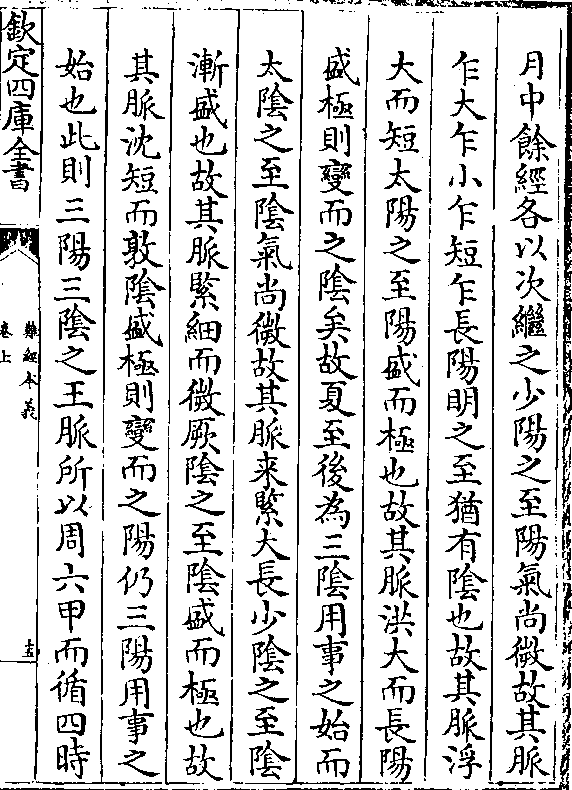 月中餘經各以次繼之少陽之至陽氣尚微故其脈
乍大乍小乍短乍長陽明之至猶有陰也故其脈浮
大而短太陽之至陽盛而極也故其脈洪大而長陽
盛極則變而之陰矣故夏至後為三陰用事之始而
太陰之至陰氣尚微故其脈来緊大長少陰之至陰
漸盛也故其脈緊細而微厥陰之至陰盛而極也故
其脈沈短而敦陰盛極則變而之陽仍三陽用事之
始也此則三陽三陰之王脈所以周六甲而循四時
欽定四庫全書
難經本義
卷上
十五